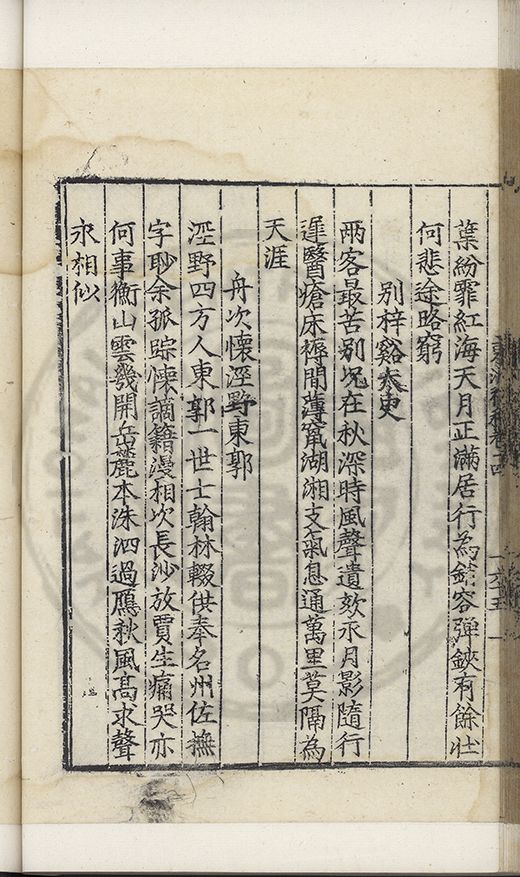 葉紛霏紅海天月正滿居行為錯容彈鋏有餘壯
何悲途路窮
別梓谿太史
兩客最苦別况在秋深時風聲遺欬氶月影隨行
遲醫瘡床褥間薄竄湖湘支氣息通萬里莫隔為
天涯
舟次懷涇野東郭
涇野四方人東郭一世士翰林輟供奉名州佐撫
字眇余孤踪悚謫籍漫相次長沙放賈生痛哭亦
何事衡山雲幾開岳麓本洙泗過鴈秋風高求聲
永相似